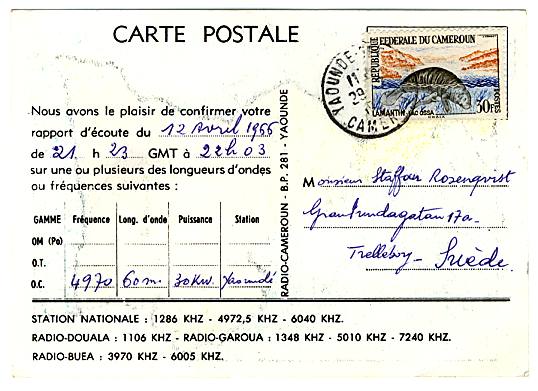 CARTE POSTALE
REPUBLIQUE FEDERALE DU CAMEROUN
LAMANTIN-LAC OSSA
POSTES
30F
YAOUNDE
CAME
Nous avons le plaisir de confirmer votre
rapport d'écoute du 12 Avril 1966
de 21 h 23 GMT à 22h03
sur une ou plusieurs des longueurs d'ondes
ou fréquences suivantes :
GAMME Fréquence Long. d'onde Puissance Station
OM (Po)
O.T.
O.C. 4970 60m. 30Kw. Yaoundé
RADIO-CAMEROUN - B.P. 281 - YAOUNDE
Monsieur Staffan Rosenqvist
17a
Trelleborg - Suède.
STATION NATIONALE : 1286 KHZ - 4972,5 KHZ - 6040 KHZ.
RADIO-DOUALA : 1106 KHZ - RADIO-GAROUA : 1348 KHZ - 5010 KHZ - 7240 KHZ.
RADIO-BUEA : 3970 KHZ - 6005 KHZ.